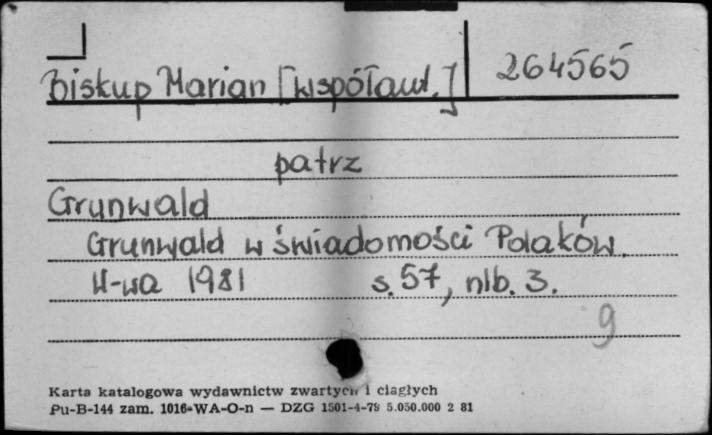 Biskup Marian [współaut.] 264565
patrz
Grunwald
Grunwald w świadomości Polaków.
W-wa 1981 s. 57, nlb. 3.
9
Karta katalogowa wydawnictw zwartych i ciągłych
Pu-B-144 zam. 1016-WA-O-n — DZG 1501-4-79 5.050.000 2 81